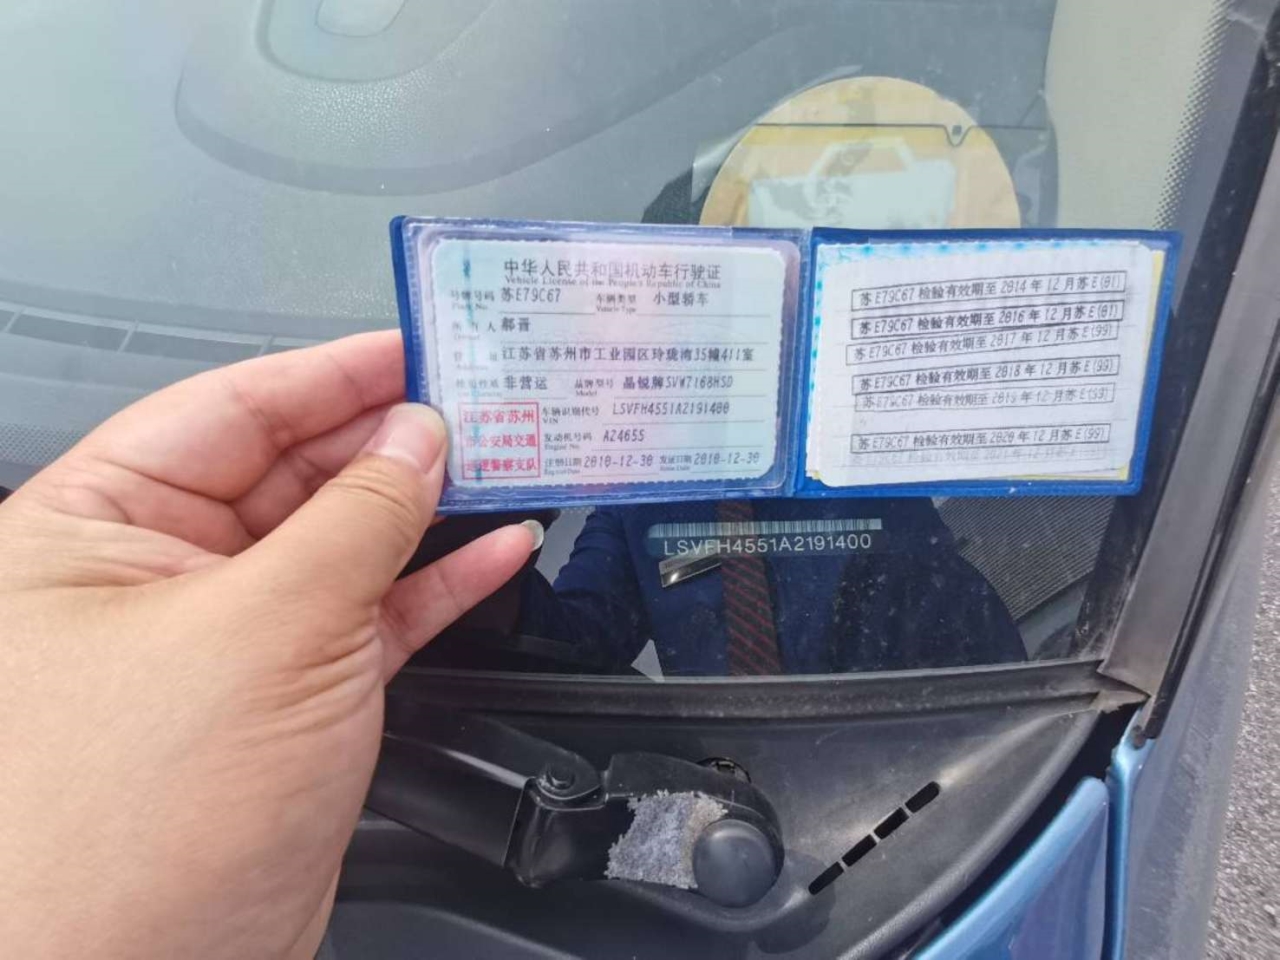 中华人民共和国机动车行驶证
Vehicle License of the People's Republic of China
号牌号码 苏E79C67 车辆类型 小型轿车
Plate No. Vehicle Type
人 郝晋
址 江苏省苏州市工业园区玲珑湾35幢411室
性质 非营运 品牌型号 晶锐牌SVW7168HSD
Model
江苏省苏州
市公安局交通
巡逻警察支队
车辆识别代号 LSVFH4551A2191400
VIN
发动机号码 A24655
Engine No.
注册日期 2010-12-30 发证日期 2010-12-30
Register Date Issue Date
苏E79C67 检验有效期至 2014 年 12 月苏 E(01)
苏E79C67 检验有效期至 2016 年 12 月苏 E(01)
苏E79C67 检验有效期至 2017 年 12 月苏 E(99)
苏E79C67 检验有效期至 2018 年 12 月苏 E(99)
苏E79C67 检验有效期至 2019 年 12 月苏 E(99)
苏E79C67 检验有效期至 2020 年 12 月苏 E(99)
LSVFH4551A2191400